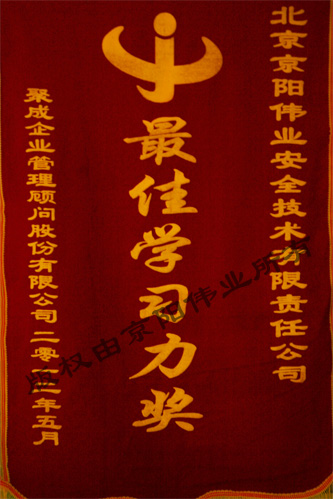 北京京阳伟业安全技术有限责任公司
最佳学习力奖
聚成企业管理顾问股份有限公司二零一二年五月
版权由京阳伟业所有